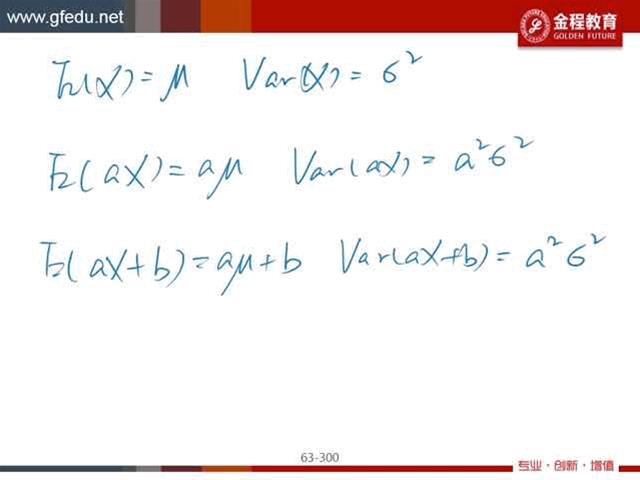 www.gfedu.net
金程教育
GOLDEN FUTURE
E(X)=μ Var(X)=σ²
E(aX)=aμ Var(aX)=a²σ²
E(aX+b)=aμ+b Var(aX+b)=a²σ²
63-300
专业·创新·增值